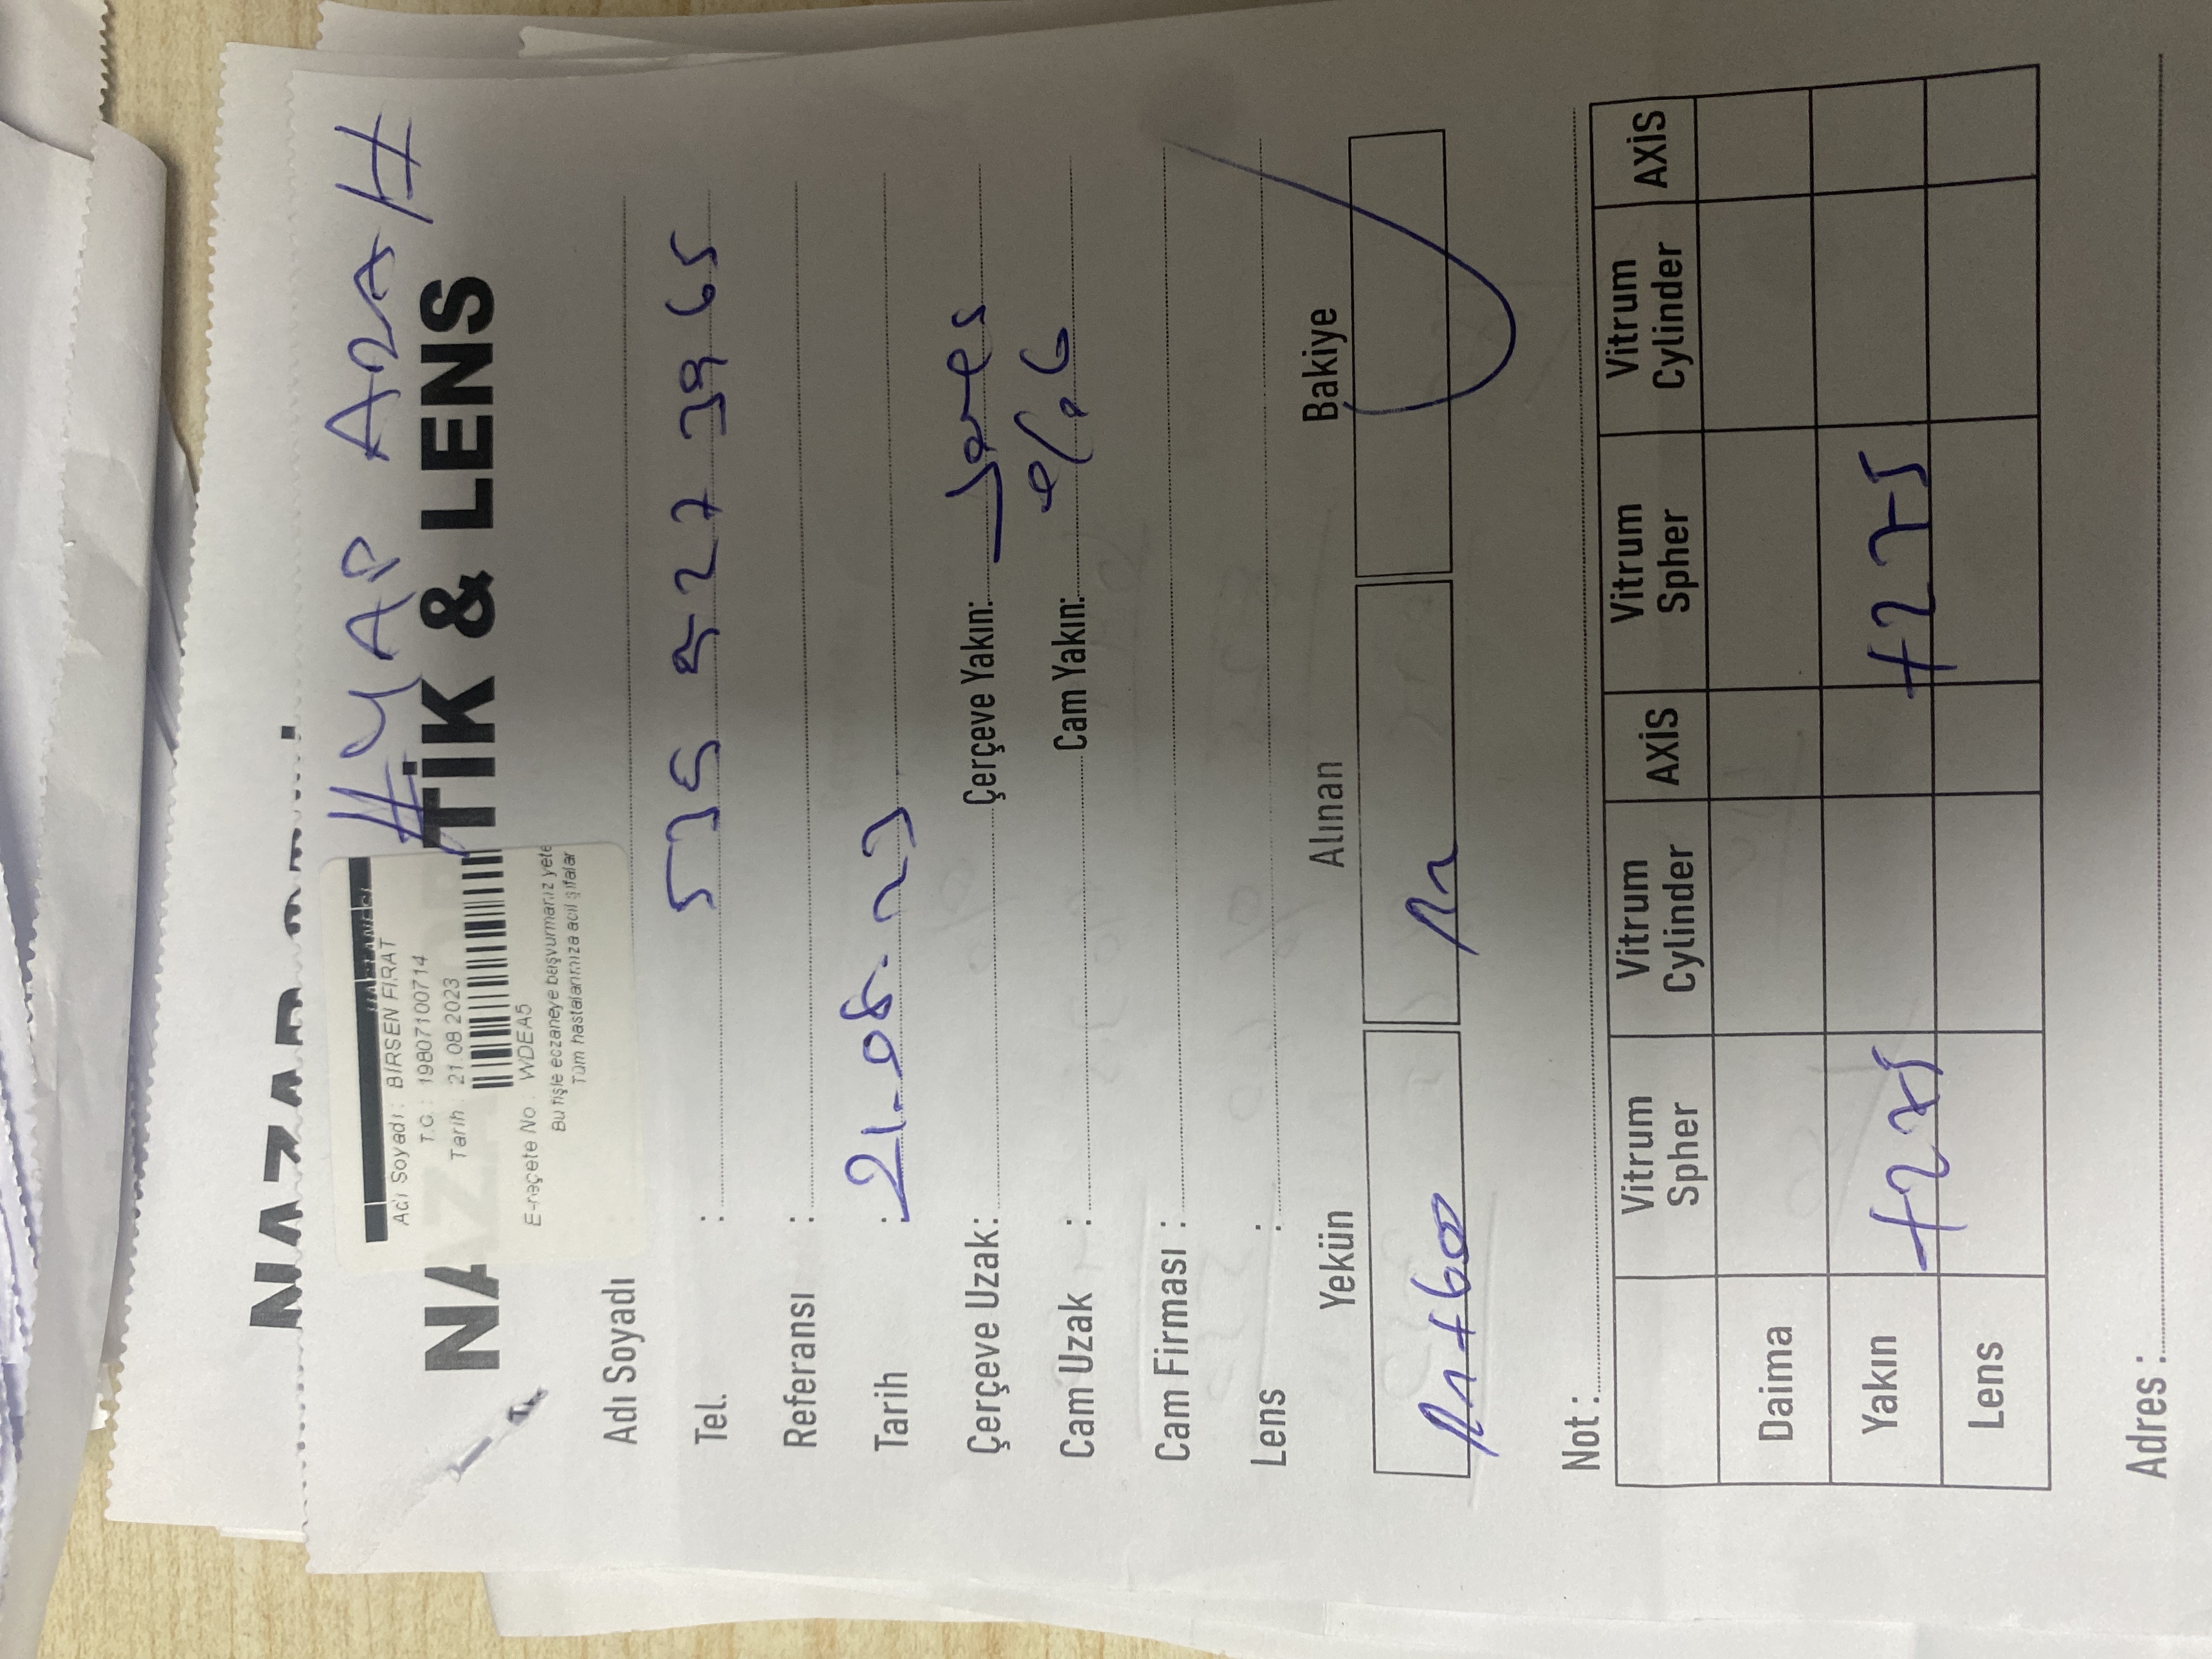 #YAP ARA#
HASTANESİ
Adı Soyadı : BİRSEN FIRAT
T.C. : 19807100714
Tarih : 21.08.2023
E-reçete No : WDEA5
Bu fişle eczaneye başvurmanız yete
Tüm hastalarımıza acil şifalar
NAZAR OPTİK & LENS
Adı Soyadı
Tel. : 535 527 39 65
Referansı :
Tarih : 21.08.23
Çerçeve Uzak: Çerçeve Yakın:
Cam Uzak : Cam Yakın:
Cam Firması :
Lens :
Yekün Alınan Bakiye
+600
Not :
Vitrum Spher Vitrum Cylinder AXİS Vitrum Spher Vitrum Cylinder AXİS
Daima
Yakın +275 +275
Lens
Adres :